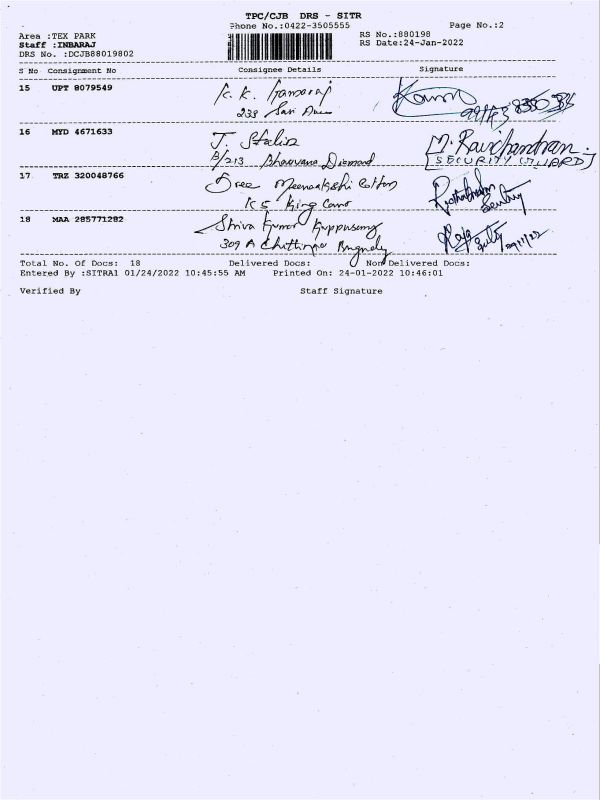 TPC/CJB DRS - SITR
Phone No.:0422-3505555 Page No.:2
Area :TEX PARK RS No.:880198
Staff :INBARAJ RS Date:24-Jan-2022
DRS No. :DCJB88019802
S No Consignment No Consignee Details Signature
15 UPT 8079549 K. K. Kamaraj
233
16 MYD 4671633 J. Stalin M. Ravichandran
B/213 Bhavana Diamond [SECURITY GUARD]
17 TRZ 320048766 Sree Meenakshi Cotton
K5 King
18 MAA 285771282 Shiva Kumar Kuppusamy
309 A
Total No. Of Docs: 18 Delivered Docs: Non Delivered Docs:
Entered By :SITRA1 01/24/2022 10:45:55 AM Printed On: 24-01-2022 10:46:01
Verified By Staff Signature